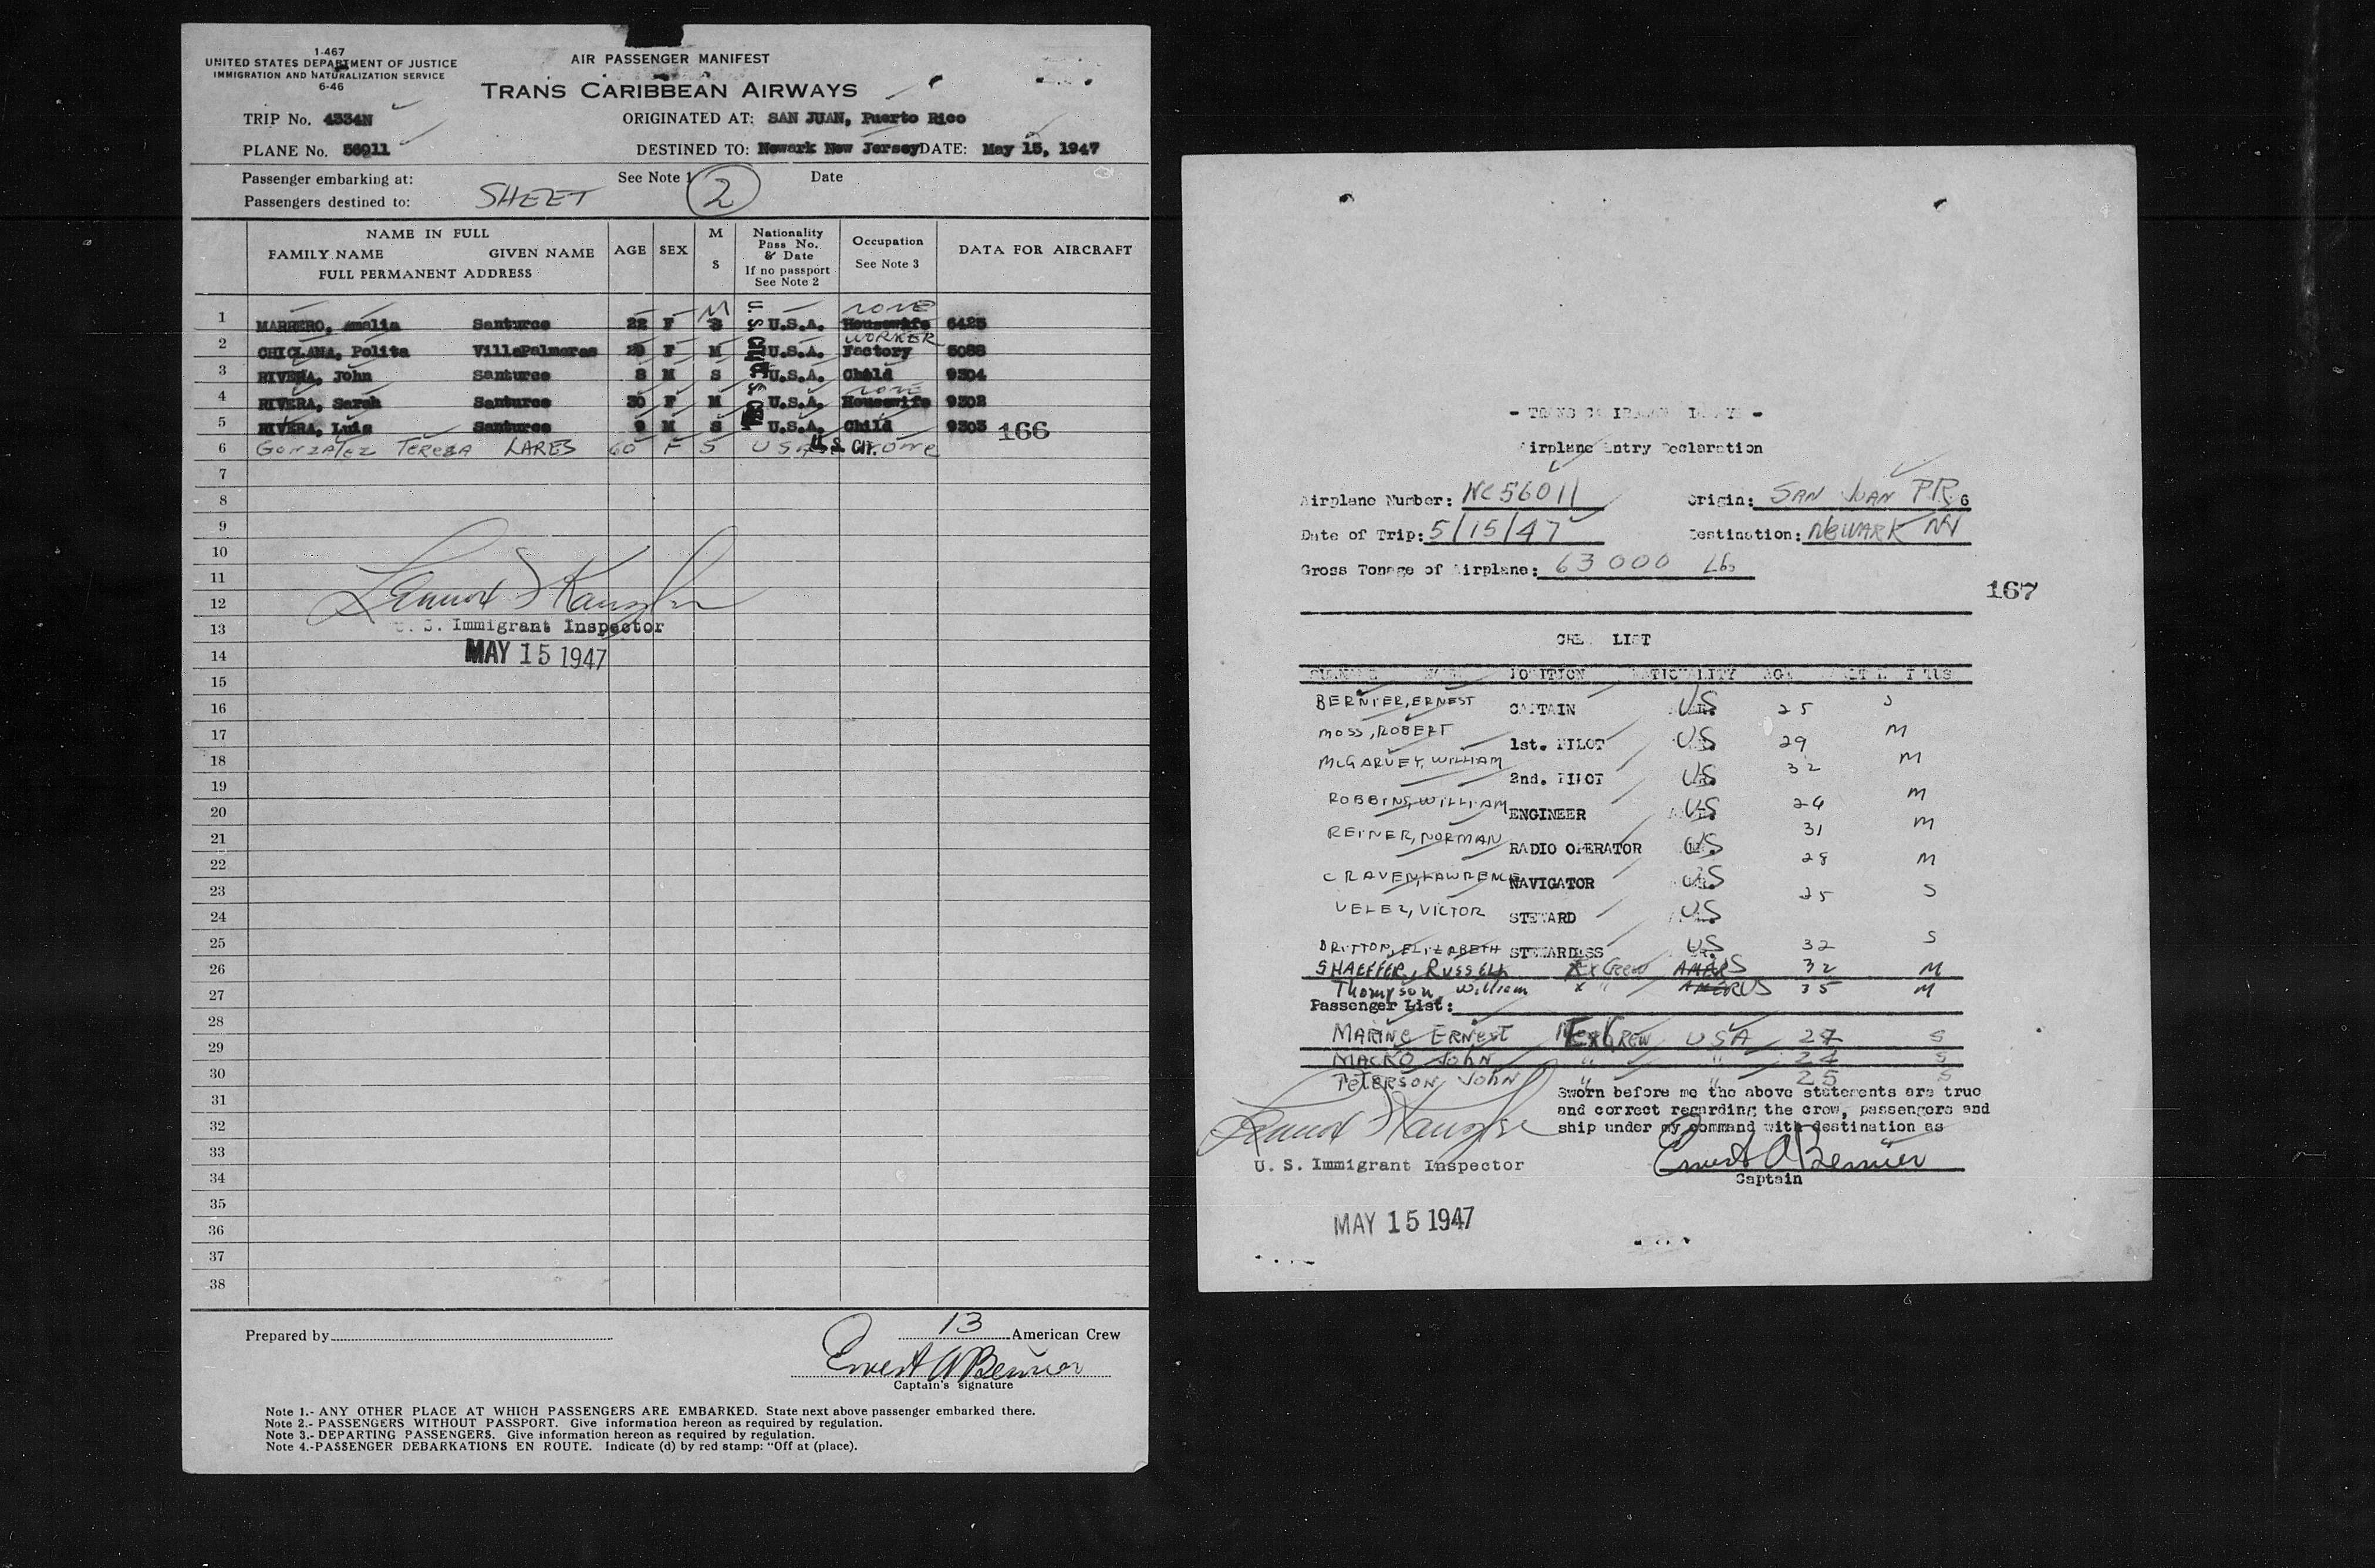 1-467
UNITED STATES DEPARTMENT OF JUSTICE
IMMIGRATION AND NATURALIZATION SERVICE
6-46
AIR PASSENGER MANIFEST
TRANS CARIBBEAN AIRWAYS
TRIP No. 4334N
ORIGINATED AT: SAN JUAN, Puerto Rico
PLANE No. 56011
DESTINED TO: Newark New Jersey DATE: May 15, 1947
Passenger embarking at: See Note 1 Date
Passengers destined to: SHEET 2
NAME IN FULL
FAMILY NAME GIVEN NAME
FULL PERMANENT ADDRESS
AGE SEX M S
Nationality Pass No. & Date If no passport See Note 2
Occupation See Note 3
DATA FOR AIRCRAFT
1 MARRERO, Amalia Santurce 22 F M U.S.A. Housewife none 6425
2 CHICLANA, Polita VillaPalmeras 29 F M U.S.A. Factory WORKER 5088
3 RIVERA, John Santurce 8 M S U.S.A. Child 9304
4 RIVERA, Sarah Santurce 30 F M U.S.A. Housewife none 9302
5 RIVERA, Luis Santurce 9 M S U.S.A. Child 9303 166
6 GONZALEZ TERESA LARES 60 F S USA U.S. CIT. none
7
8
9
10
11
12
13 U. S. Immigrant Inspector
14 MAY 15 1947
15
16
17
18
19
20
21
22
23
24
25
26
27
28
29
30
31
32
33
34
35
36
37
38
Prepared by 13 American Crew
Ernest A Bernier
Captain's signature
Note 1.- ANY OTHER PLACE AT WHICH PASSENGERS ARE EMBARKED. State next above passenger embarked there.
Note 2.- PASSENGERS WITHOUT PASSPORT. Give information hereon as required by regulation.
Note 3.- DEPARTING PASSENGERS. Give information hereon as required by regulation.
Note 4.-PASSENGER DEBARKATIONS EN ROUTE. Indicate (d) by red stamp: "Off at (place).
Airplane Entry Declaration
Airplane Number: NC56011 Origin: SAN JUAN PR 6
Date of Trip: 5/15/47 Destination: NEWARK NJ
Gross Tonage of Airplane: 63000 Lbs
167
LIST
POSITION NATIONALITY AGE
BERNIER, ERNEST CAPTAIN US 25 S
MOSS, ROBERT 1st. PILOT US 29 M
McGARVEY, WILLIAM 2nd. PILOT US 32 M
ROBBINS, WILLIAM ENGINEER US 24 M
REINER, NORMAN RADIO OPERATOR US 31 M
CRAVEN, LAWRENCE NAVIGATOR US 28 M
VELEZ, VICTOR STEWARD US 25 S
BRITTON, ELIZABETH STEWARDESS US 32 S
SHAEFFER, RUSSELL Ex Crew US 32 M
Thompson, William x " US 35 M
Passenger List:
MARINE ERNEST Ex CREW USA 27 S
MACKO JOHN " " 24 S
PETERSON JOHN " " 25 S
Sworn before me the above statements are true
and correct regarding the crew, passengers and
ship under my command with destination as
Ernest A Bernier
U. S. Immigrant Inspector
Captain
MAY 15 1947